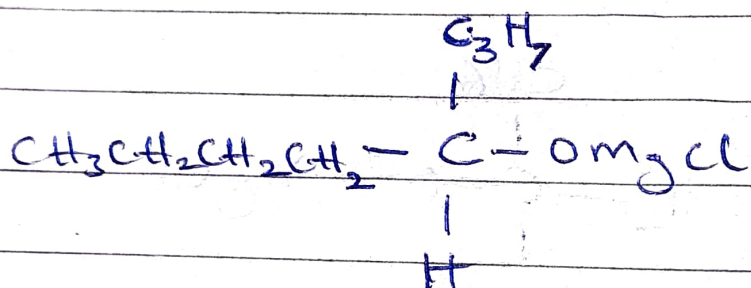 C₃H₇
|
CH₃CH₂CH₂CH₂ — C — OMgCl
|
H